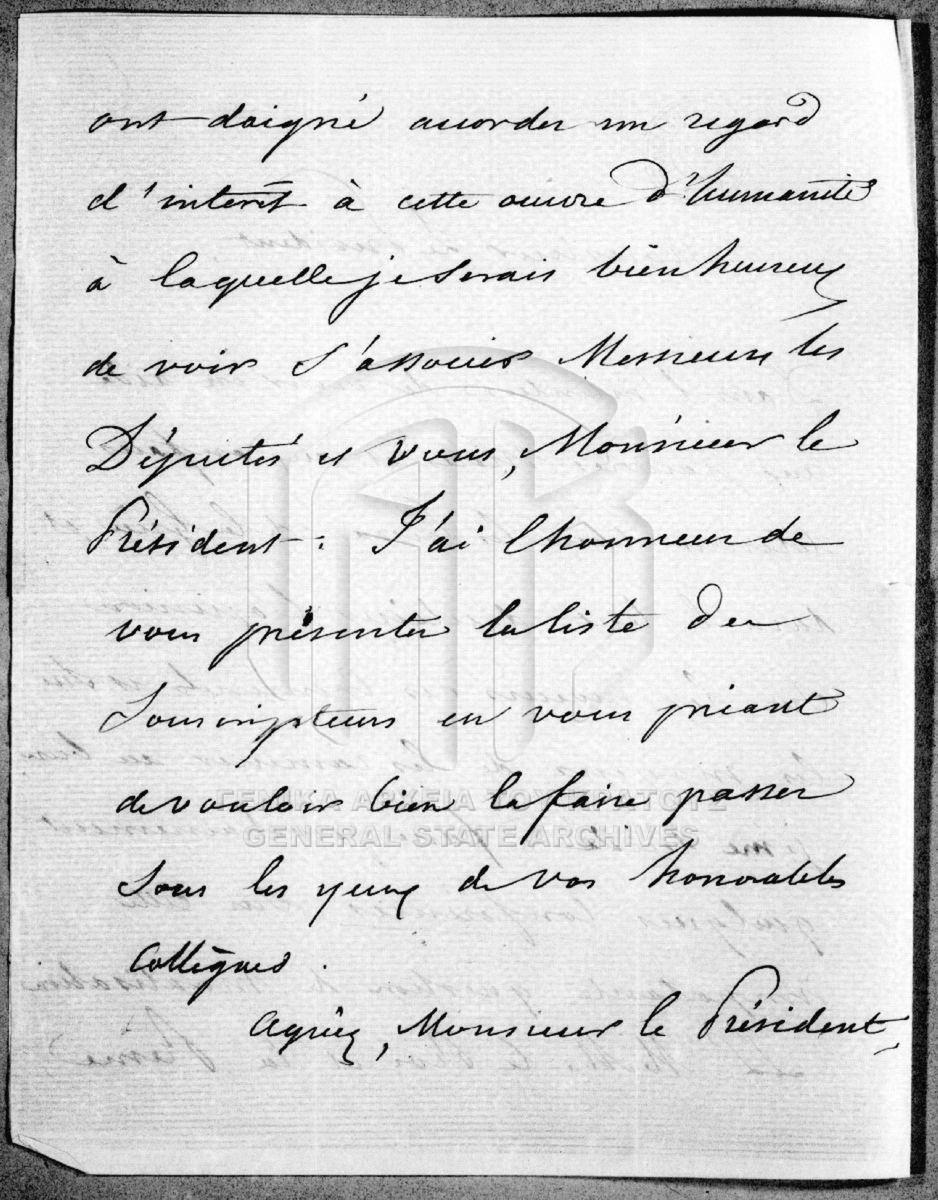 ont daigné accorder un regard
d'intérêt à cette œuvre d'humanité
à laquelle je serais bien heureux
de voir s'associer Messieurs les
Députés et vous, Monsieur le
Président. J'ai l'honneur de
vous présenter la liste des
souscripteurs en vous priant
de vouloir bien la faire passer
sous les yeux de vos honorables
collègues.
Agréez, Monsieur le Président,
ΓΕΝΙΚΑ ΑΡΧΕΙΑ ΤΟΥ ΚΡΑΤΟΥΣ
GENERAL STATE ARCHIVES